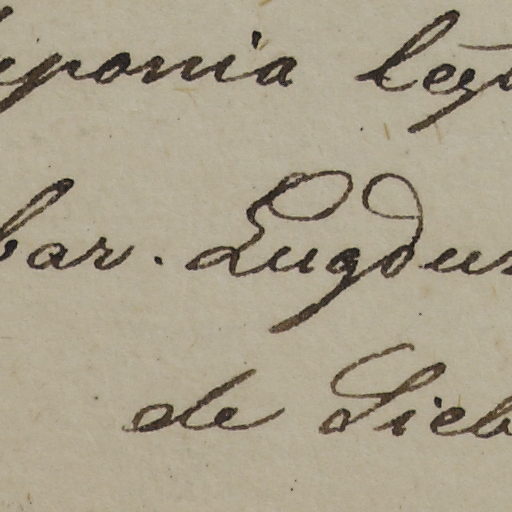 iponia leg
bar. Lugdun
de Sieb